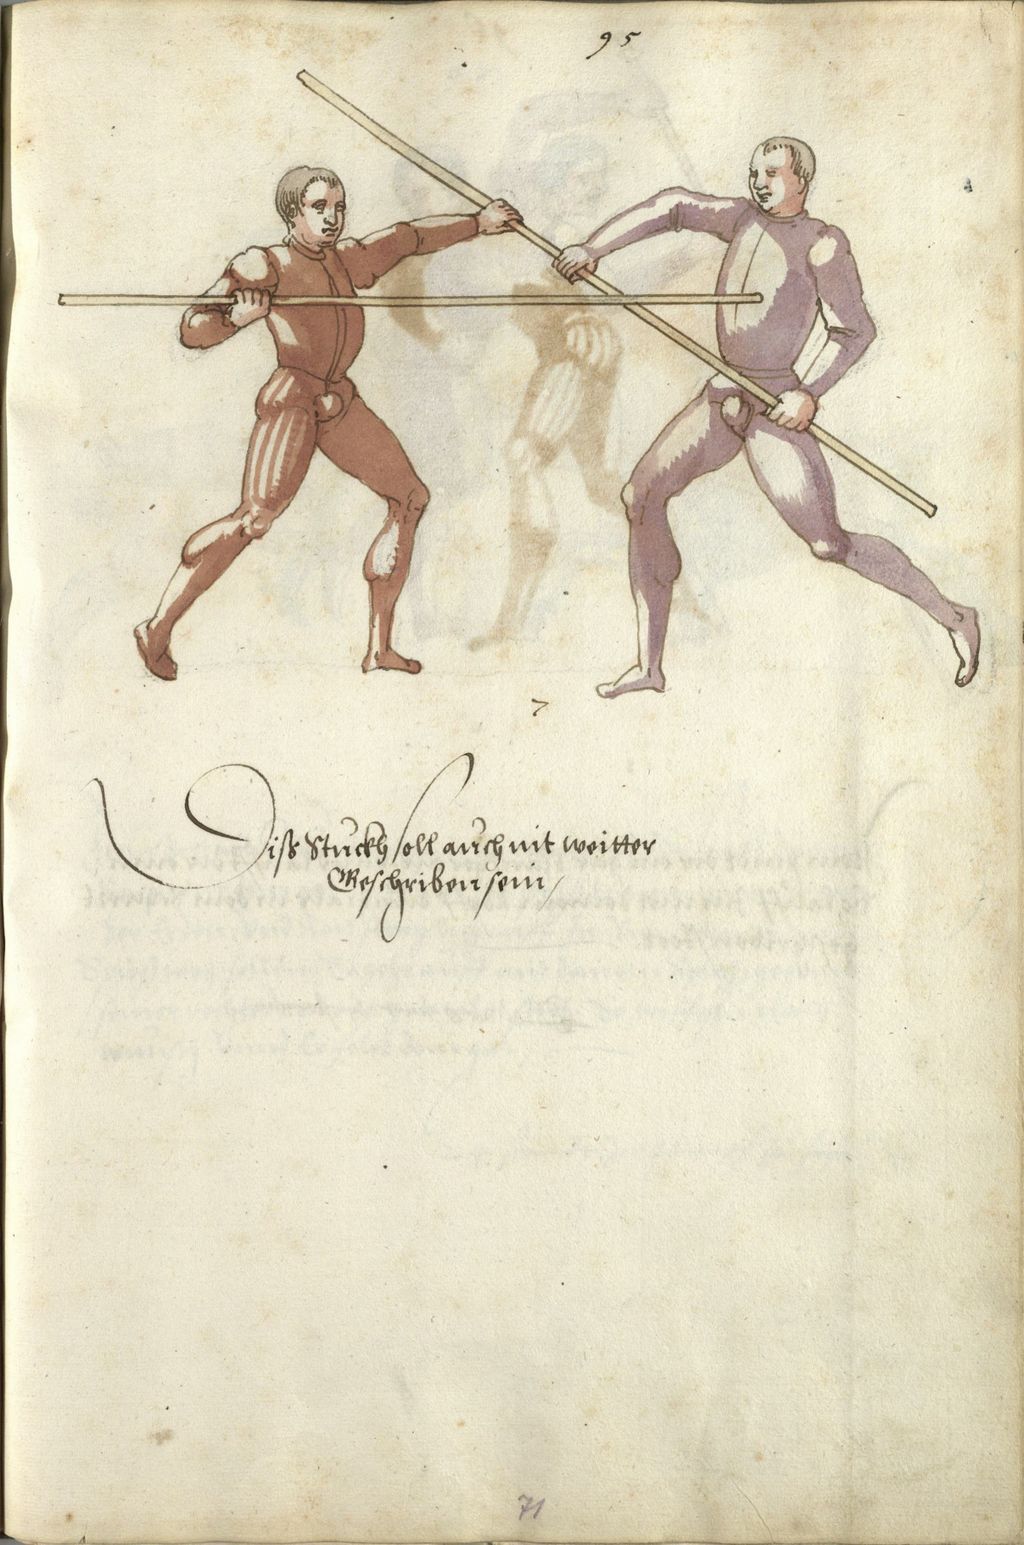 95
7
Diss Stuckh soll auch nit weitter
Geschriben sein /
71